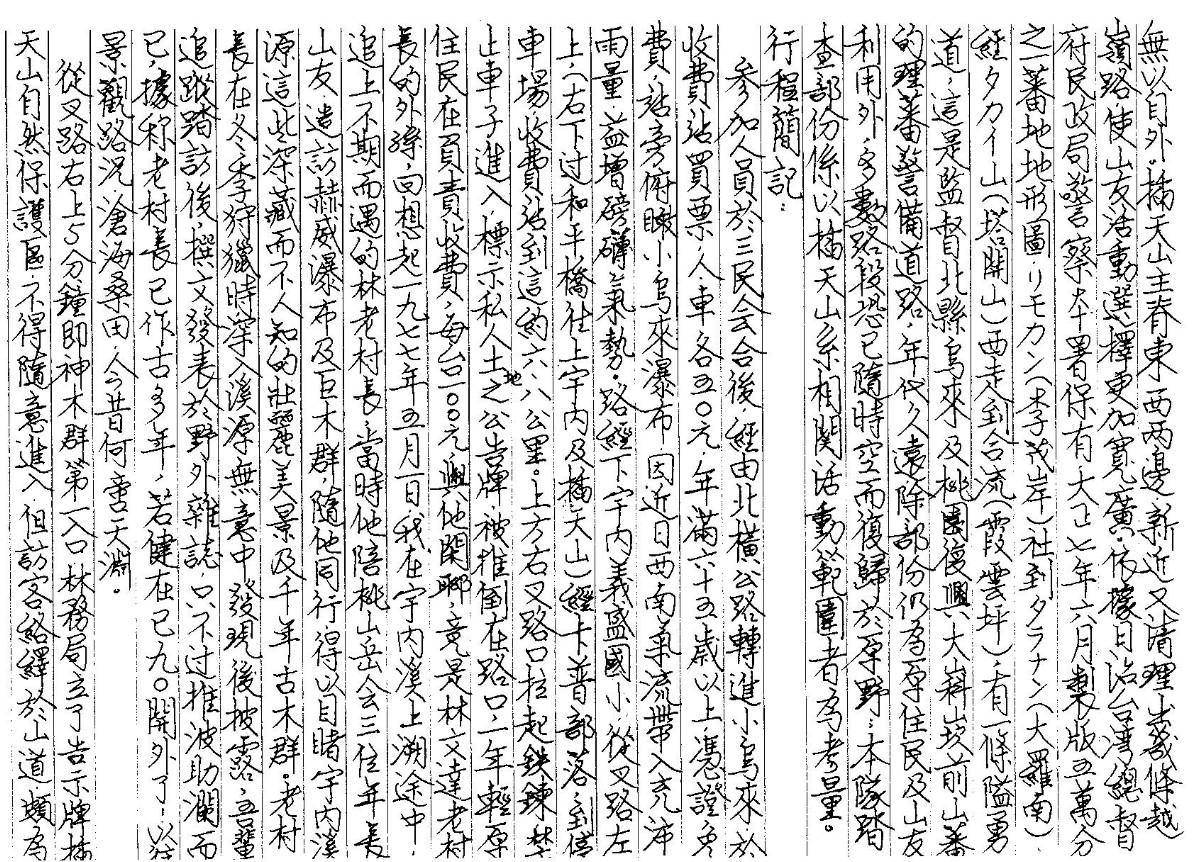 無以自外。橋天山主脊東西兩邊新近又清理幾條越
嶺路,使山友活動選擇更加寬廣。依據日治台灣總督
府民政局警察本署保有大正七年六月製版五萬分
之一蕃地地形圖リモカン(李茂岸)社到タラナン(大羅南)
經タカイ山(塔開山)西走到合流(霞雲坪),有一條隘勇
道,這是監督北縣烏來及桃園復興大嵙崁前山蕃
的理蕃警備道路,年代久遠除部份仍為原住民及山友
利用外,多數路段恐已隨時空而復歸於原野,本隊踏
查部份係以橋天山系相關活動範圍者為考量。
行程簡記:
參加人員於三民会合後,經由北橫公路轉進小烏來於
收費站買票,人車各五〇元,年滿六十五歲以上憑證免
費,站旁俯瞰小烏來瀑布因近日西南氣流帶入充沛
雨量益增磅礡氣勢,路經下宇內義盛國小,從叉路左
上,(右下过和平橋往上宇內及橋天山)經卡普部落到停
車場,收費站到這約六、八公里。上方右叉路口拉起鉄鍊禁
止車子進入,標示私人土地之公告牌,被推倒在路口,一年輕原
住民在負責收費,每台一〇〇元,興他閑聊,竟是林文達老村
長的外孫,回想起一九七七年五月一日我在宇內溪上溯途中,
追上不期而遇的林老村長,當時他陪桃山岳会三位年長
山友,造訪赫威瀑布及巨木群,隨他同行得以目睹宇內溪
源這些深藏而不人知的壯麗美景及千年古木群。老村
長在冬季狩獵時深入溪源無意中發現後披露,吾輩
追蹤踏訪後,撰文發表於野外雜誌,只不过推波助瀾而
已,據称老村長已作古多年,若健在已九〇開外了,以往
景觀路況,滄海桑田人今昔何啻天淵。
從叉路右上5分鐘即神木群第一入口林務局立了告示牌橋
天山自然保護區不得隨意進入,但訪客絡繹於山道頗為